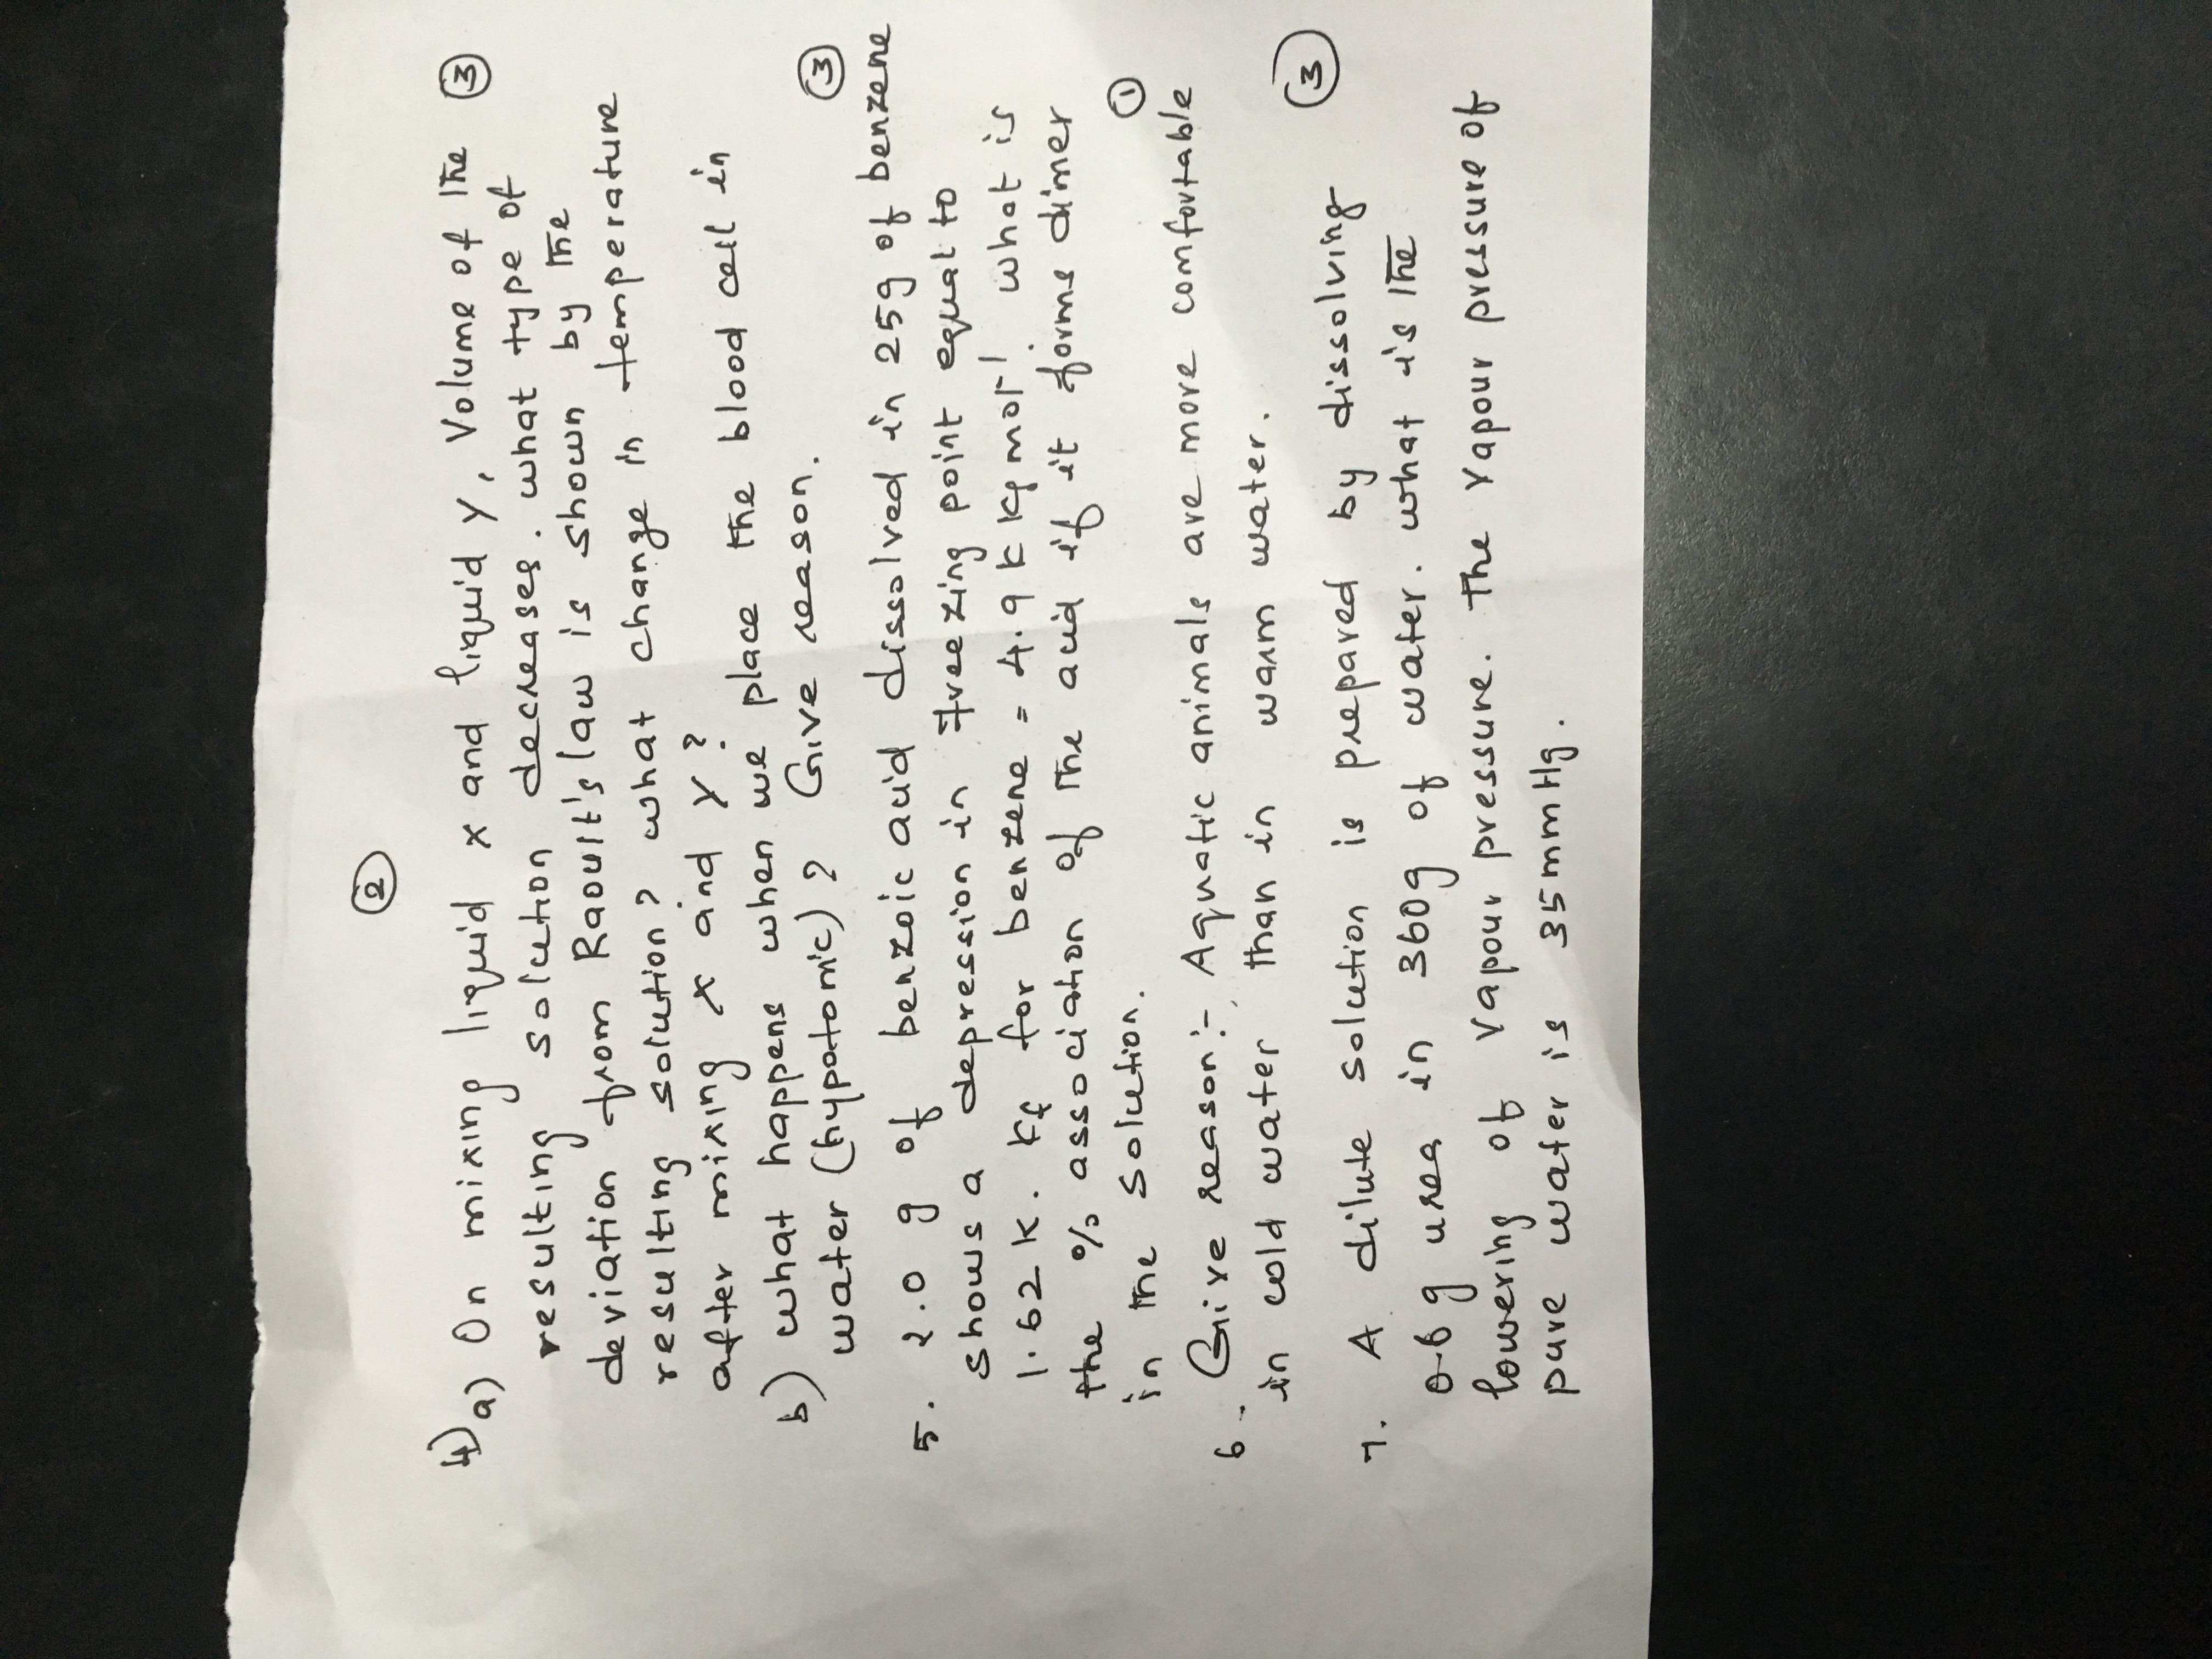 2
4) a) On mixing liquid x and liquid y, Volume of the 3
resulting solution decreases. what type of
deviation from Raoult's law is shown by the
resulting solution? what change in temperature
after mixing x and y?
b) what happens when we place the blood cell in
water (hypotonic)? Give reason.
3
5. 2.0 g of benzoic acid dissolved in 25g of benzene
shows a depression in freezing point equal to
1.62 K. Kf for benzene = 4.9 K Kg mol⁻¹. what is
the % association of the acid if it forms dimer
in the solution.
1
6. Give reason:- Aquatic animals are more comfortable
in cold water than in warm water.
3
7. A dilute solution is prepared by dissolving
0.6 g urea in 360g of water. what is the
lowering of vapour pressure. The vapour pressure of
pure water is 35mmHg.